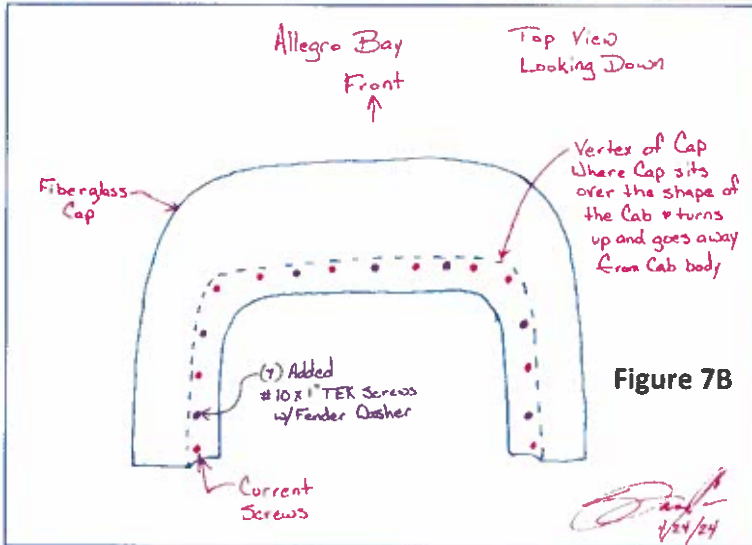 Allegro Bay
Front
Top View
Looking Down
Fiberglass
Cap
Vertex of Cap
Where Cap sits
over the shape of
the Cab & turns
up and goes away
from Cab body
(7) Added
#10 x 1" TEK Screws
w/Fender Washer
Figure 7B
Current
Screws
4/24/24